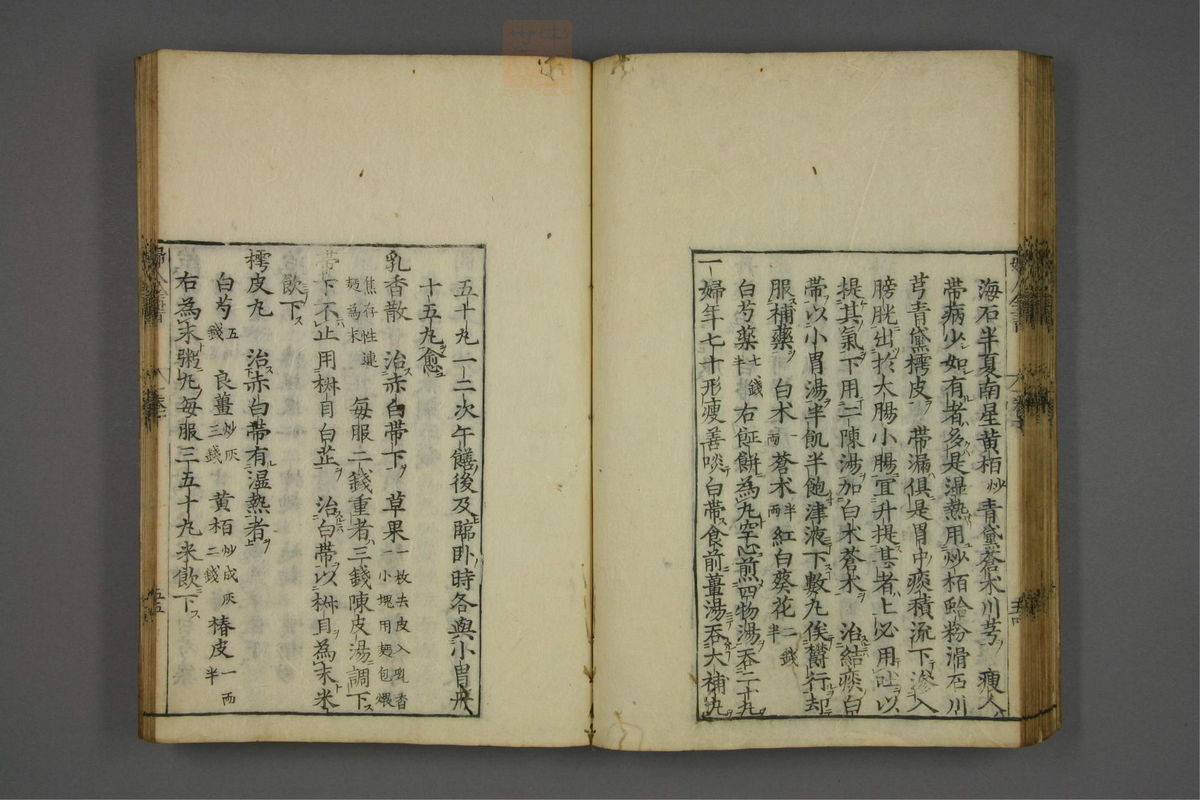 海石半夏南星黄栢炒青黛蒼朮川芎 瘦人
帶病少如有者多是湿熱用炒栢蛤粉滑石川
芎青黛樗皮 帶漏俱是胃中痰積流下滲入
膀胱出於大腸小腸宜升提甚者上必用吐以
提其氣下用二陳湯加白朮蒼朮 治結痰白
帶以小胃湯半飢半飽津液下數丸俟欝行却
服補藥 白朮一兩蒼朮半兩紅白葵花二錢半
白芍藥七錢半右蒸餅為丸空心煎四物湯吞二十丸
一婦年七十形瘦善啖白帶食前薑湯吞大補丸
五十丸一二次午饍後及臨卧時各與小胃丹
十五丸愈
乳香散 治赤白帶下 草果一枚去皮入乳香一小塊用麺包煨
焦存性連麺為末 每服二錢重者三錢陳皮湯調下
帶下不止用椒目白芷 治白帶以椒目為末米
飲下
樗皮丸 治赤白帶有湿熱者
白芍五錢 良薑炒灰三錢 黄栢炒成灰二錢 椿皮一兩半
右為末粥丸每服三五十丸米飲下